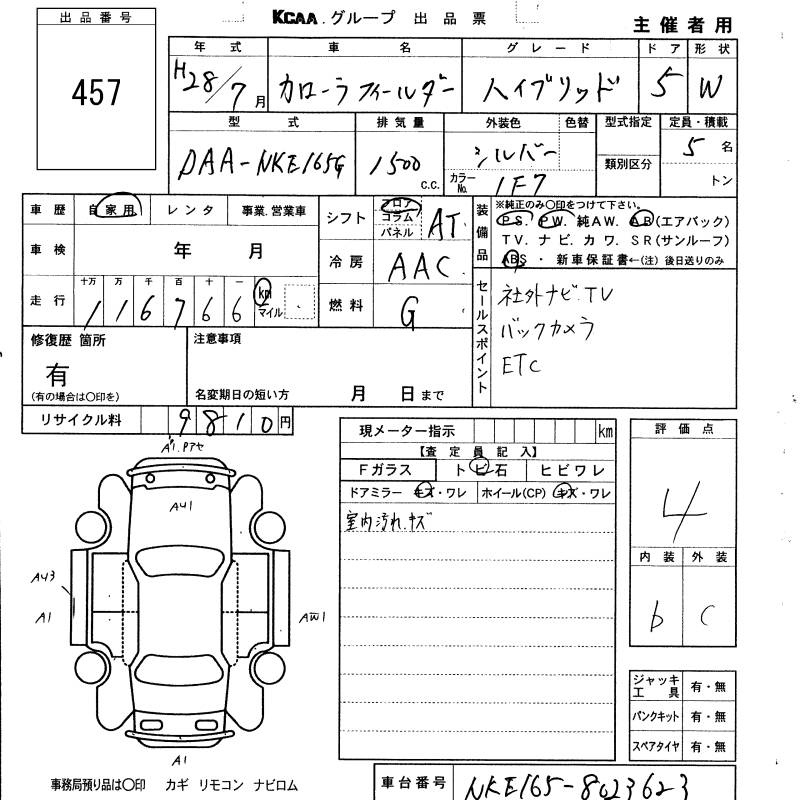 KCAA.グループ 出品票
主催者用
出品番号
457
年式 車名 グレード ドア 形状
H28/7月 カローラフィールダー ハイブリッド 5 W
型式 排気量 外装色 色替 型式指定 定員・積載
DAA-NKE165G 1500 c.c. シルバー 類別区分 5名
カラーNo. 1F7 トン
車歴 自家用 レンタ 事業.営業車 シフト フロア コラム パネル AT
装備品 ※純正のみ〇印をつけて下さい。
PS. PW. 純AW. AB(エアバック)
TV. ナビ. カワ. SR(サンルーフ)
ABS ・ 新車保証書←(注) 後日送りのみ
車検 年 月 冷房 AAC
走行 十万 万 千 百 十 一
116766 km マイル 燃料 G
セールスポイント 社外ナビ.TV
バックカメラ
ETC
修復歴 箇所 注意事項
有
(有の場合は〇印を) 名変期日の短い方 月 日まで
リサイクル料 9810円
現メーター指示 km
【査定員記入】
Fガラス トビ石 ヒビワレ
ドアミラー キズ・ワレ ホイール(CP) キズ・ワレ
室内汚れ.キズ
評価点
4
内装 外装
b C
AU1
AU3
A1
AW1
A1
ジャッキ工具 有・無
パンクキット 有・無
スペアタイヤ 有・無
事務局預り品は〇印 カギ リモコン ナビロム
車台番号 NKE165-8023623